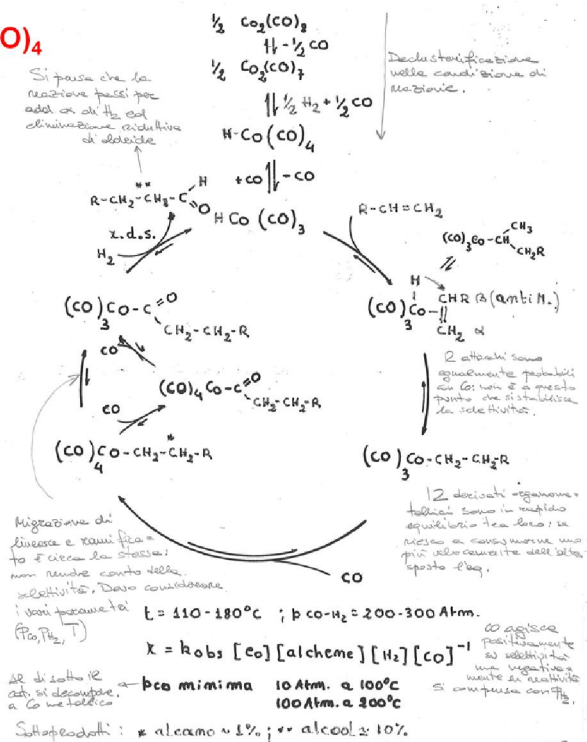 O)₄
½ Co₂(CO)₈
⇅ -½ CO
½ Co₂(CO)₇
⇅ ½ H₂ + ½ CO
H-Co(CO)₄
+CO ⇅ -CO
HCo(CO)₃
Declusterificazione
nelle condizione di
reazione.
Si pensa che la
reazione passi per
add ox di H₂ ed
eliminazione riduttiva
di aldeide
R-CH₂-CH₂-C
**
H
O
x.d.s.
H₂
R-CH=CH₂
(CO)₃Co-CH
CH₃
CH₂R
H
(CO)₃Co-
CHR β (anti M.)
CH₂ α
2 attacchi sono
egualmente probabili
con Co: non è a questo
punto che si stabilisce
la selettività.
(CO)₃Co-C=O
CH₂-CH₂-R
CO
(CO)₄Co-C=O
CH₂-CH₂-R
CO
(CO)₄Co-CH₂-CH₂-R
*
(CO)₃Co-CH₂-CH₂R
I 2 derivati organome-
tallici sono in rapido
equilibrio tra loro: se
riesco a consumarne uno
più velocemente dell'altro
sposto l'eq.
CO
Migrazione di
lineare e ramifica-
to è circa la stessa:
non rende conto della
selettività. Devo considerare
i vari parametri
(Pco, PH₂, T)
t = 110-180°C ; p CO-H₂ = 200-300 Atm.
K = Kobs [Co] [alchene] [H₂] [CO]⁻¹
CO agisce
positivamente
su selettività
ma negativa-
mente su reattività
si compensa con PH₂.
Al di sotto il
cat. si decompone
a Co metallico
← pco minima 10 Atm. a 100°C
100 Atm. a 200°C
Sottoprodotti : * alcano ~ 1% ; ** alcool ≥ 10%